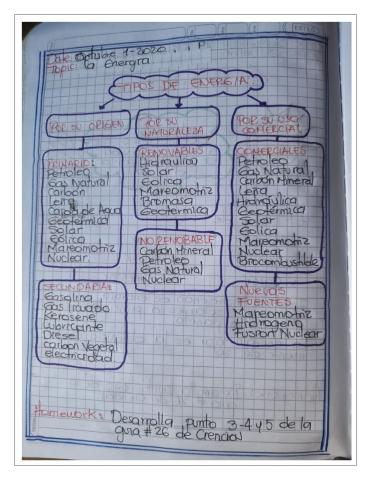 Date: Octubre 1-2020.
Topic: la Energia
TIPOS DE ENERGIA
POR SU ORIGEN
POR SU
NATURALEZA
POR SU USO
COMERCIAL
PRIMARIO:
Petroleo
Gas Natural
Carbón
Leña
Caida de Agua
Geotermica
Solar
Eolica
Mareomotriz
Nuclear.
SECUNDARIA:
Gasolina
Gas licuado
Kerosene
Lubricante
Diesel
carbon Vegetal
electricidad
RENOVABLES
Hidraulica
Solar
Eolica
Mareomotriz
Biomasa
Geotermica
NO RENOBABLE
Carbón Mineral
Petroleo
Gas Natural
Nuclear
COMERCIALES
Petroleo
Gas Natural
Carbón Mineral
Leña
Hidraulica
Geotermica
Solar
Eolica
Mareomotriz
Nuclear
Biocombustible
NUEVAS
FUENTES
Mareomotriz
Hidrogeno
Fusion Nuclear
Homework: Desarrolla punto 3-4 y 5 de la
guia #26 de Ciencias